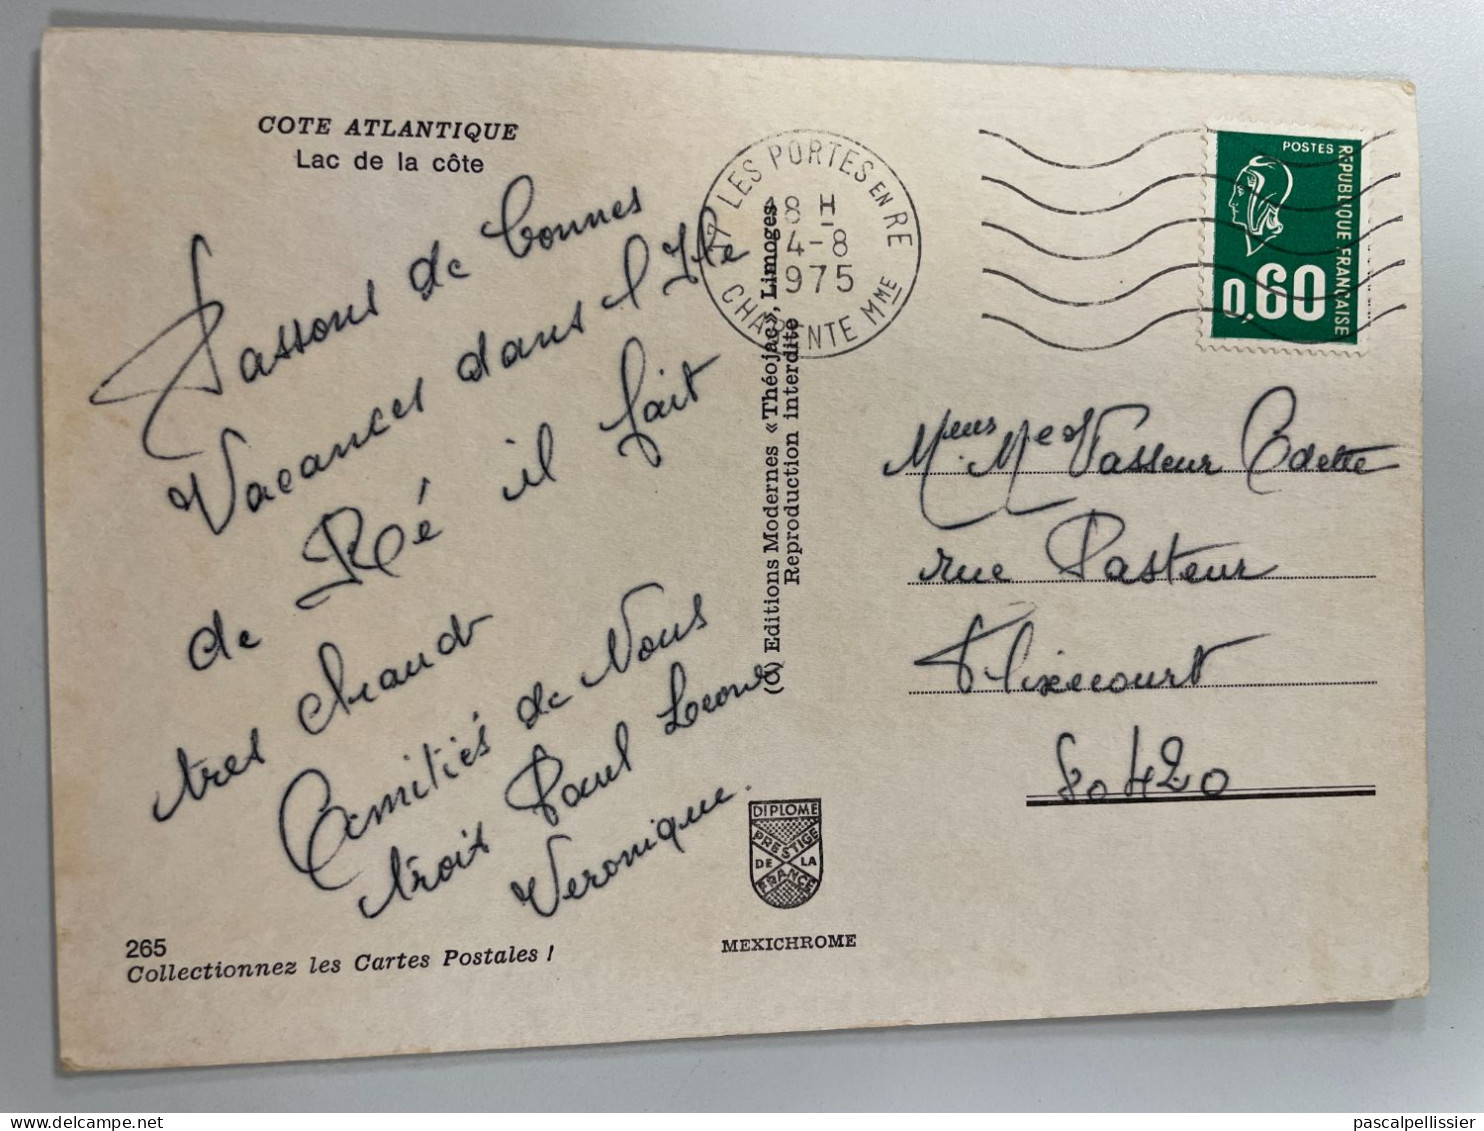 COTE ATLANTIQUE
Lac de la côte
Passons de bonnes
Vacances dans l Ile
de Ré il fait
tres chaud
Amitiés de Nous
trois Paul Leone
Veronique.
265
Collectionnez les Cartes Postales !
(c) Editions Modernes «Théojac», Limoges
Reproduction interdite
DIPLOME
PRESTIGE
DE LA
FRANCE
MEXICHROME
17 LES PORTES EN RE
18 H
4-8
1975
CHARENTE MME
POSTES
REPUBLIQUE FRANÇAISE
0,60
Vasseur Odette
rue Pasteur
Flixecourt
80420
pascalpellissier